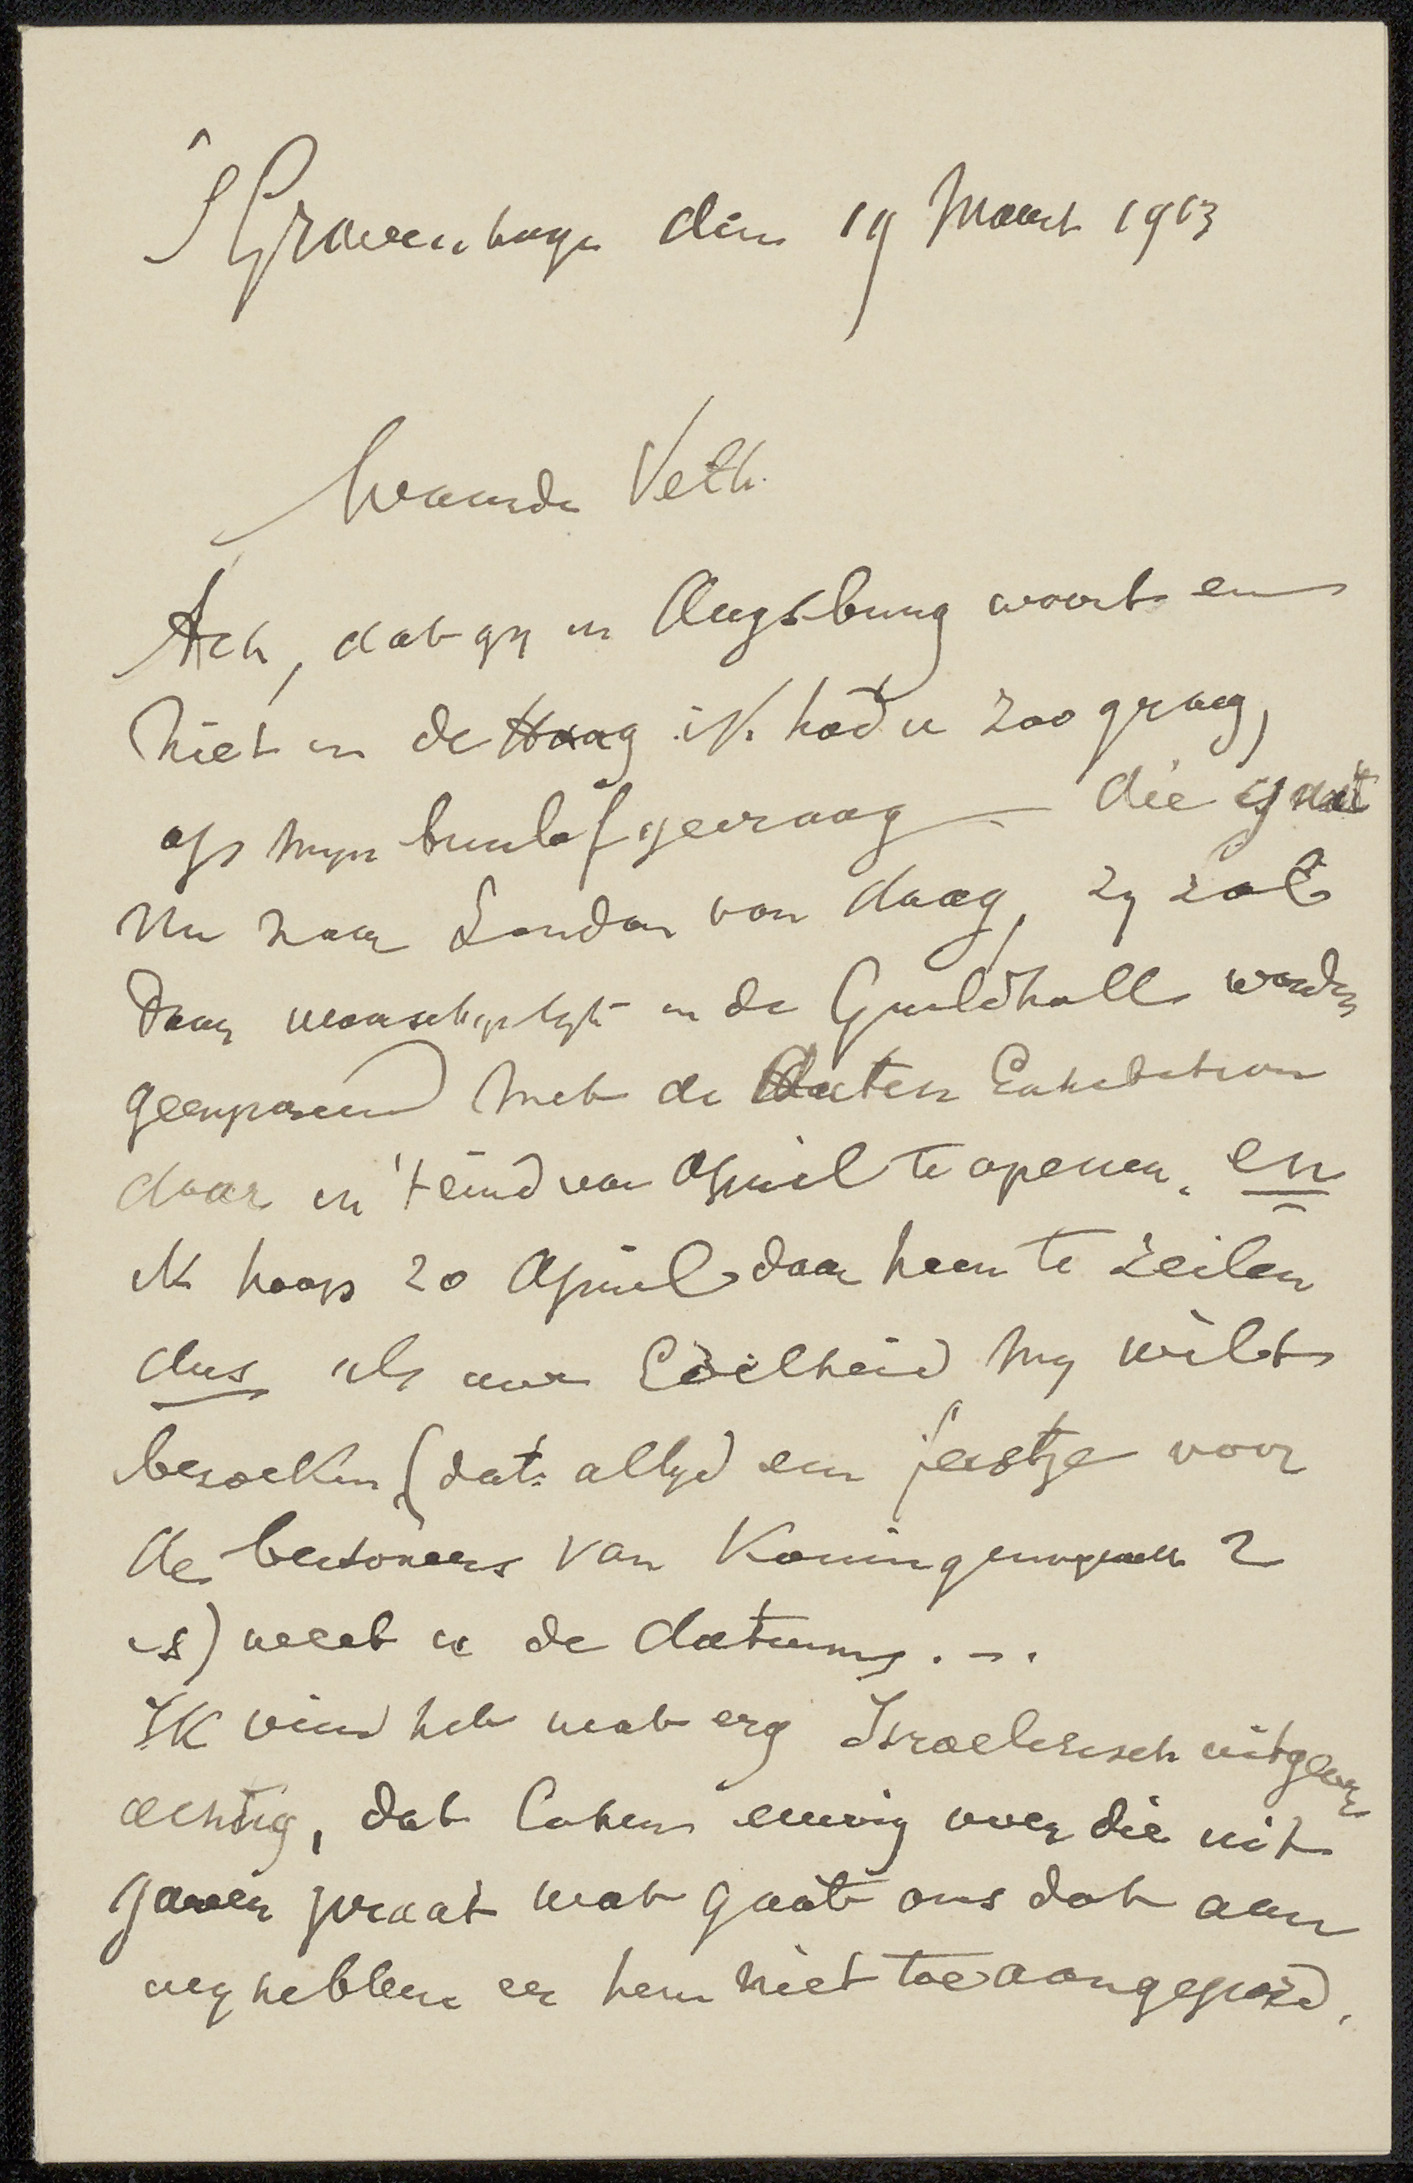 'S Gravenhage den 19 Maart 1903
Waarde Veth.
Ach, dat gy in Augsburg woont en
niet in de Haag ik had u zoo graag,
op myn bruilof gevraag — die gaat
nu naar London van daag, zy zal
daar waarschynlyk in de Guildhall worden
geexposeerd met de Duten Exhibition
daar in 't eind van April te openen. en
ik hoop 20 April daar heen te zeilen
dus als uwe Edelheid my wilt
bezoeken (dat altyd een feestje voor
de bewoners van Koninginnegracht 2
is) weet u de datums . - .
Ik vind het wat erg Israelisisch uitgever
achtig, dat Cohen eeuwig over die uit
gaven praat wat gaat ons dat aan
wy hebben er hem niet toe aangespoord.